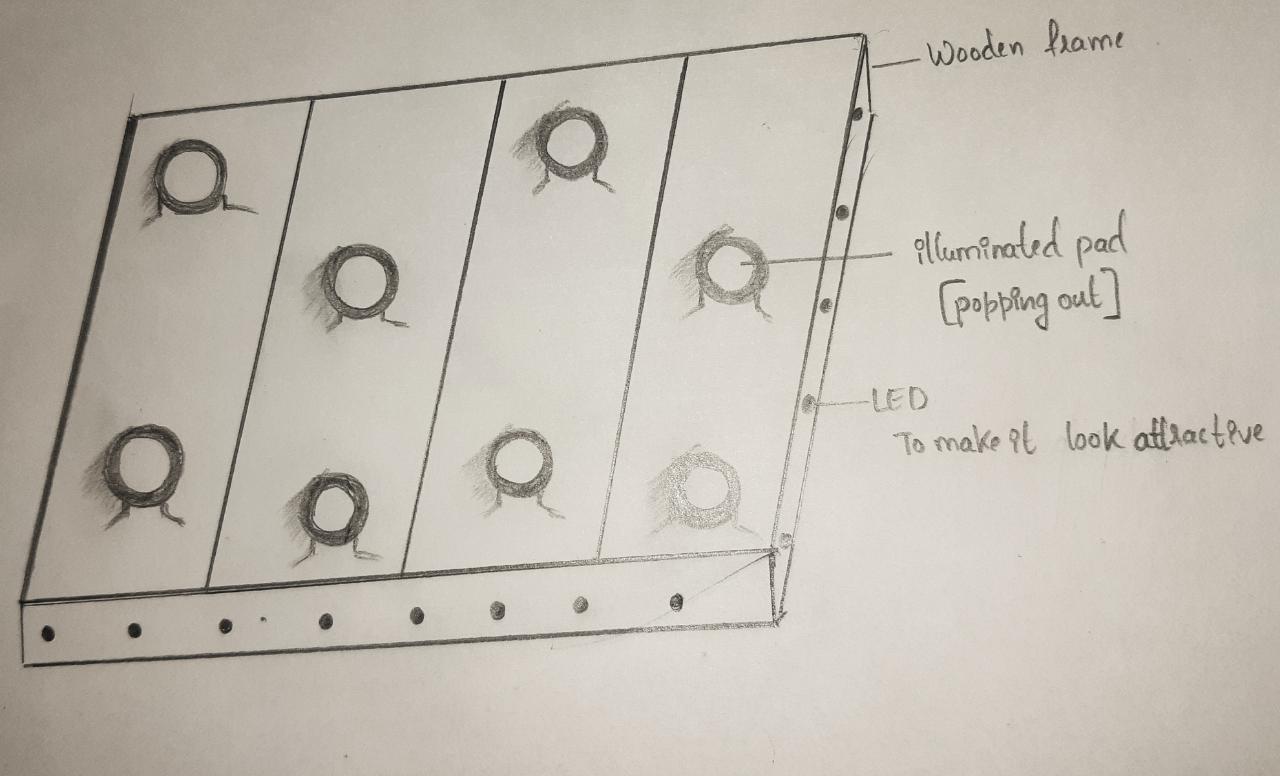 Wooden frame
illuminated pad
[popping out]
LED
To make it look attractive